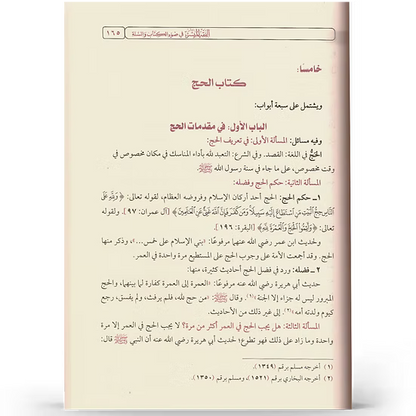 الفقه الميسر في ضوء الكتاب والسنة ١٦٥
خامسا:
كتاب الحج
ويشتمل على سبعة أبواب:
الباب الأول: في مقدمات الحج
وفيه مسائل: المسألة الأولى: في تعريف الحج:
الحَجُّ في اللغة: القصد. وفي الشرع: التعبد لله بأداء المناسك في مكان مخصوص في
وقت مخصوص، على ما جاء في سنة رسول الله ﷺ.
المسألة الثانية: حكم الحج وفضله:
١ـ حكم الحج: الحج أحد أركان الإسلام وفروضه العظام، لقوله تعالى: ﴿وَلِلَّهِ عَلَى
النَّاسِ حِجُّ الْبَيْتِ مَنِ اسْتَطَاعَ إِلَيْهِ سَبِيلًا وَمَنْ كَفَرَ فَإِنَّ اللَّهَ غَنِيٌّ عَنِ الْعَالَمِينَ﴾ [آل عمران: ٩٧]. ولقوله
تعالى: ﴿وَأَتِمُّوا الْحَجَّ وَالْعُمْرَةَ لِلَّهِ﴾ [البقرة: ١٩٦].
ولحديث ابن عمر رضي الله عنهما مرفوعًا: (بني الإسلام على خمس...)، وذكر منها
الحج. وقد أجمعت الأمة على وجوب الحج على المستطيع مرة واحدة في العمر.
٢ـ فضله: ورد في فضل الحج أحاديث كثيرة، منها:
حديث أبي هريرة رضي الله عنه مرفوعًا: (العمرة إلى العمرة كفارة لما بينهما، والحج
المبرور ليس له جزاء إلا الجنة)(١). وقال ﷺ: (من حج لله، فلم يرفث، ولم يفسق، رجع
كيوم ولدته أمه)(٢). إلى غير ذلك من الأحاديث.
المسألة الثالثة: هل يجب الحج في العمر أكثر من مرة؟ لا يجب الحج في العمر إلا مرة
واحدة وما زاد على ذلك فهو تطوع؛ لحديث أبي هريرة رضي الله عنه أن النبي ﷺ قال:
(١) أخرجه مسلم برقم (١٣٤٩).
(٢) أخرجه البخاري برقم (١٥٢١)، ومسلم برقم (١٣٥٠).